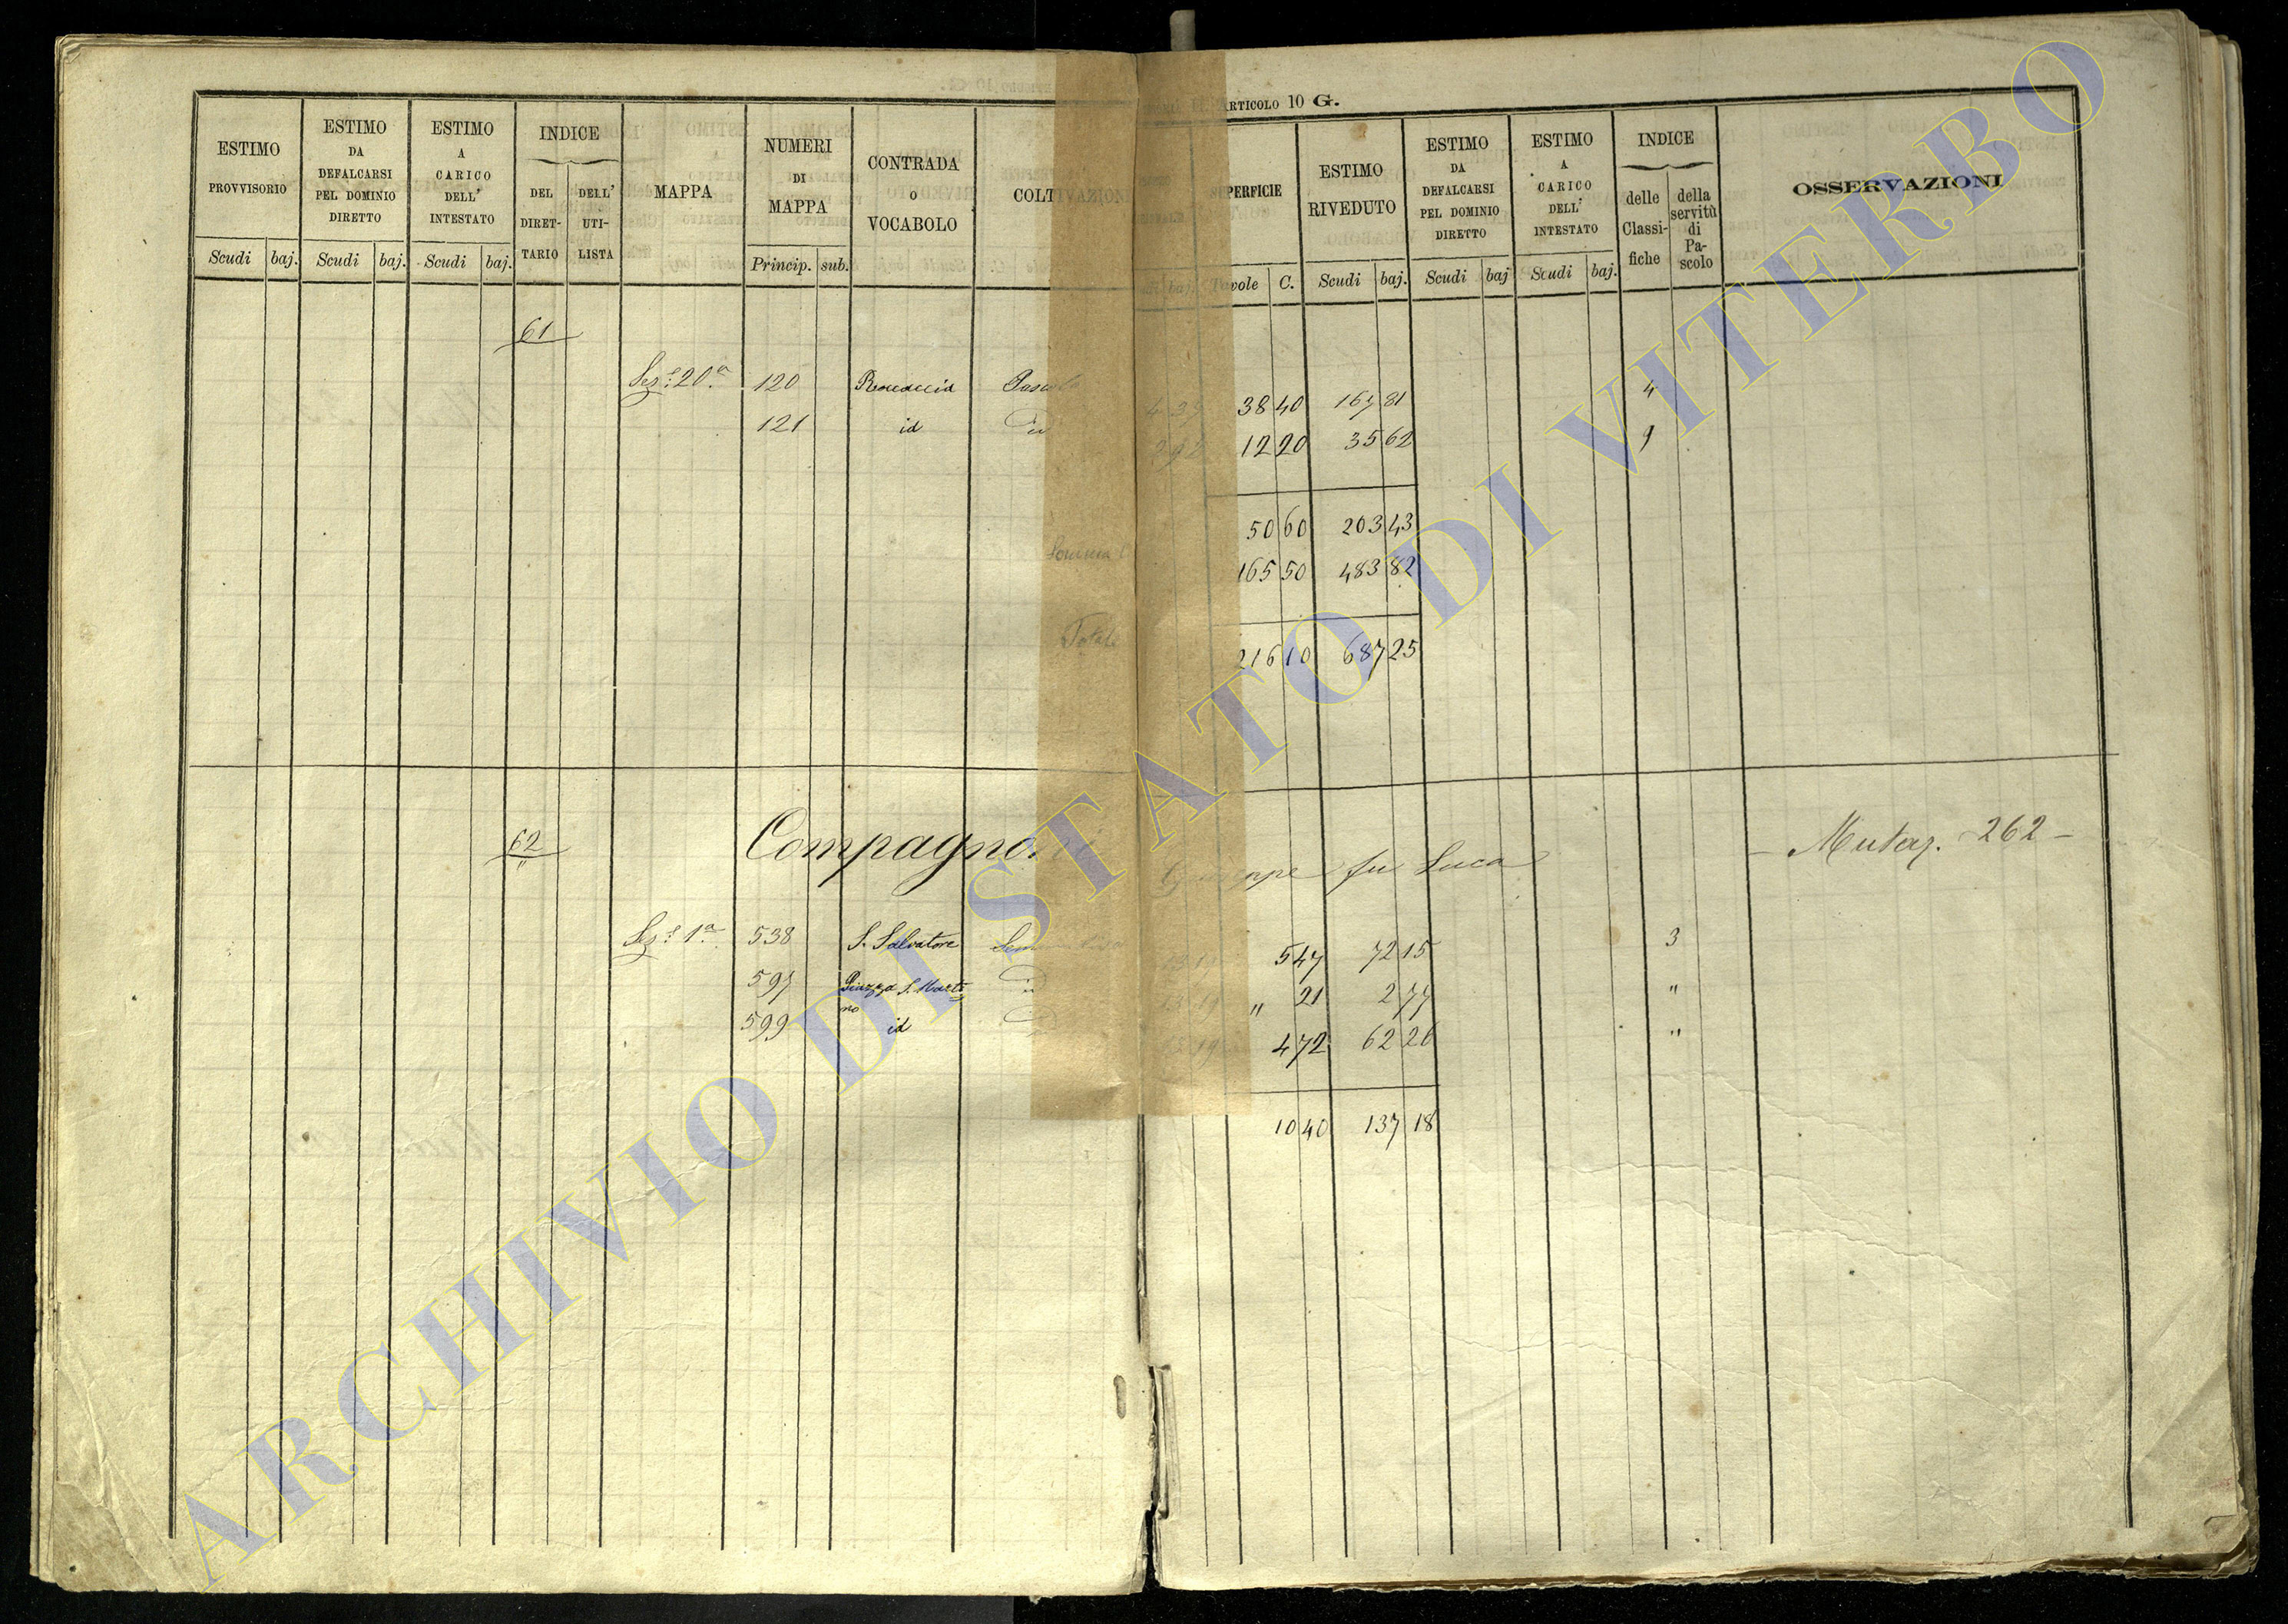 ARTICOLO 10 G.
ESTIMO PROVVISORIO Scudi baj.
ESTIMO DA DEFALCARSI PEL DOMINIO DIRETTO Scudi baj.
ESTIMO A CARICO DELL' INTESTATO Scudi baj.
INDICE DEL DIRET-TARIO DELL' UTI-LISTA
MAPPA
NUMERI DI MAPPA Princip. sub.
CONTRADA O VOCABOLO
SUPERFICIE Tavole C.
ESTIMO RIVEDUTO Scudi baj.
ESTIMO DA DEFALCARSI PEL DOMINIO DIRETTO Scudi baj
ESTIMO A CARICO DELL' INTESTATO Scudi baj.
INDICE delle Classi-fiche della servitù di Pa-scolo
OSSERVAZIONI
61
Sez.e 20.a 120 Pascolo 38 40 167 81 4
121 id id 12 20 35 62
50 60 203 43
Somma 165 50 483 82
Totale 216 10 687 25
62 Compagnoni Giuseppe fu Luca — Mutaz. 262 —
"
Sez.e 1.a 538 S. Salvatore 5 47 72 15 3
597 Piazza S. Marti id " 21 2 77 "
no
599 id 4 72 62 26 "
10 40 137 18
ARCHIVIO DI STATO DI VITERBO